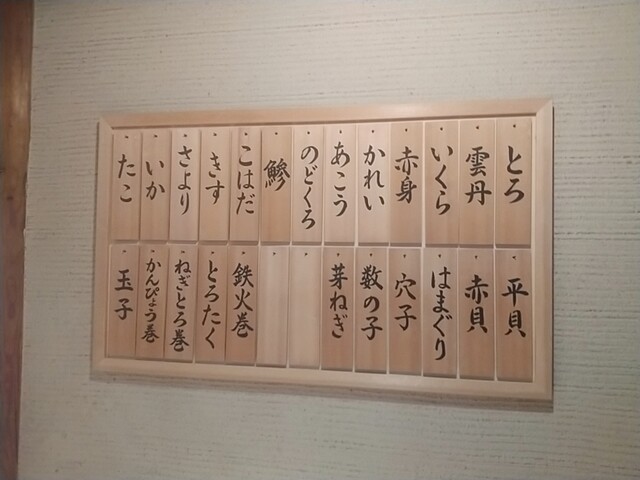 とろ
雲丹
いくら
赤身
かれい
あこう
のどくろ
鯵
こはだ
きす
さより
いか
たこ
平貝
赤貝
はまぐり
穴子
数の子
芽ねぎ
鉄火巻
とろたく
ねぎとろ巻
かんぴょう巻
玉子